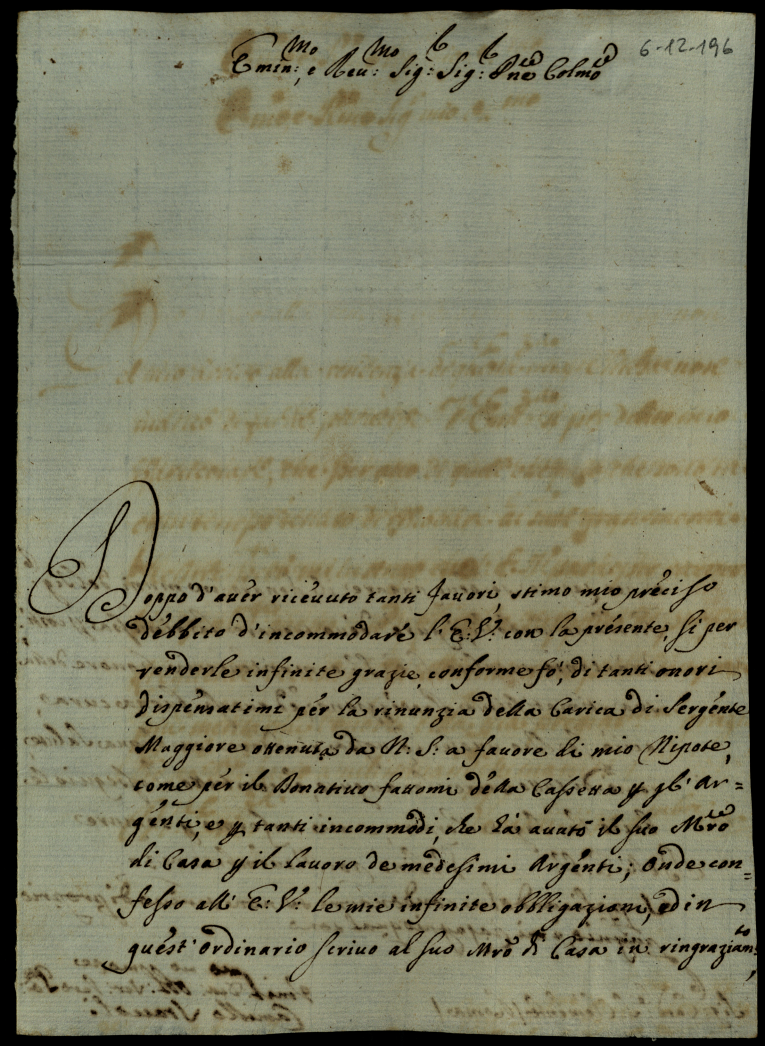 6-12-196
Emin:mo e Reu:mo Sig: Sig: Pne Colmo
Doppo d'auer riceuuto tanti fauori, stimo mio preciso
débbito d'incommodare l'E:V: con la presente, si per
renderle infinite grazie, conforme fò, di tanti onori
dispensatimi per la rinunzia della Carica di Sergente
Maggiore ottenuta da N: S: a fauore di mio Nipote,
come per il Donatiuo fattomi della Cassetta p gl'Ar=
genti, e p tanti incommodi, che hà auuto il suo Mro
di Casa p il lauoro de medesimi Argenti; Onde con=
fesso all'E:V: le mie infinite obbligazioni, ed in
quest'ordinario scriuo al suo Mro di Casa in ringraziamto,